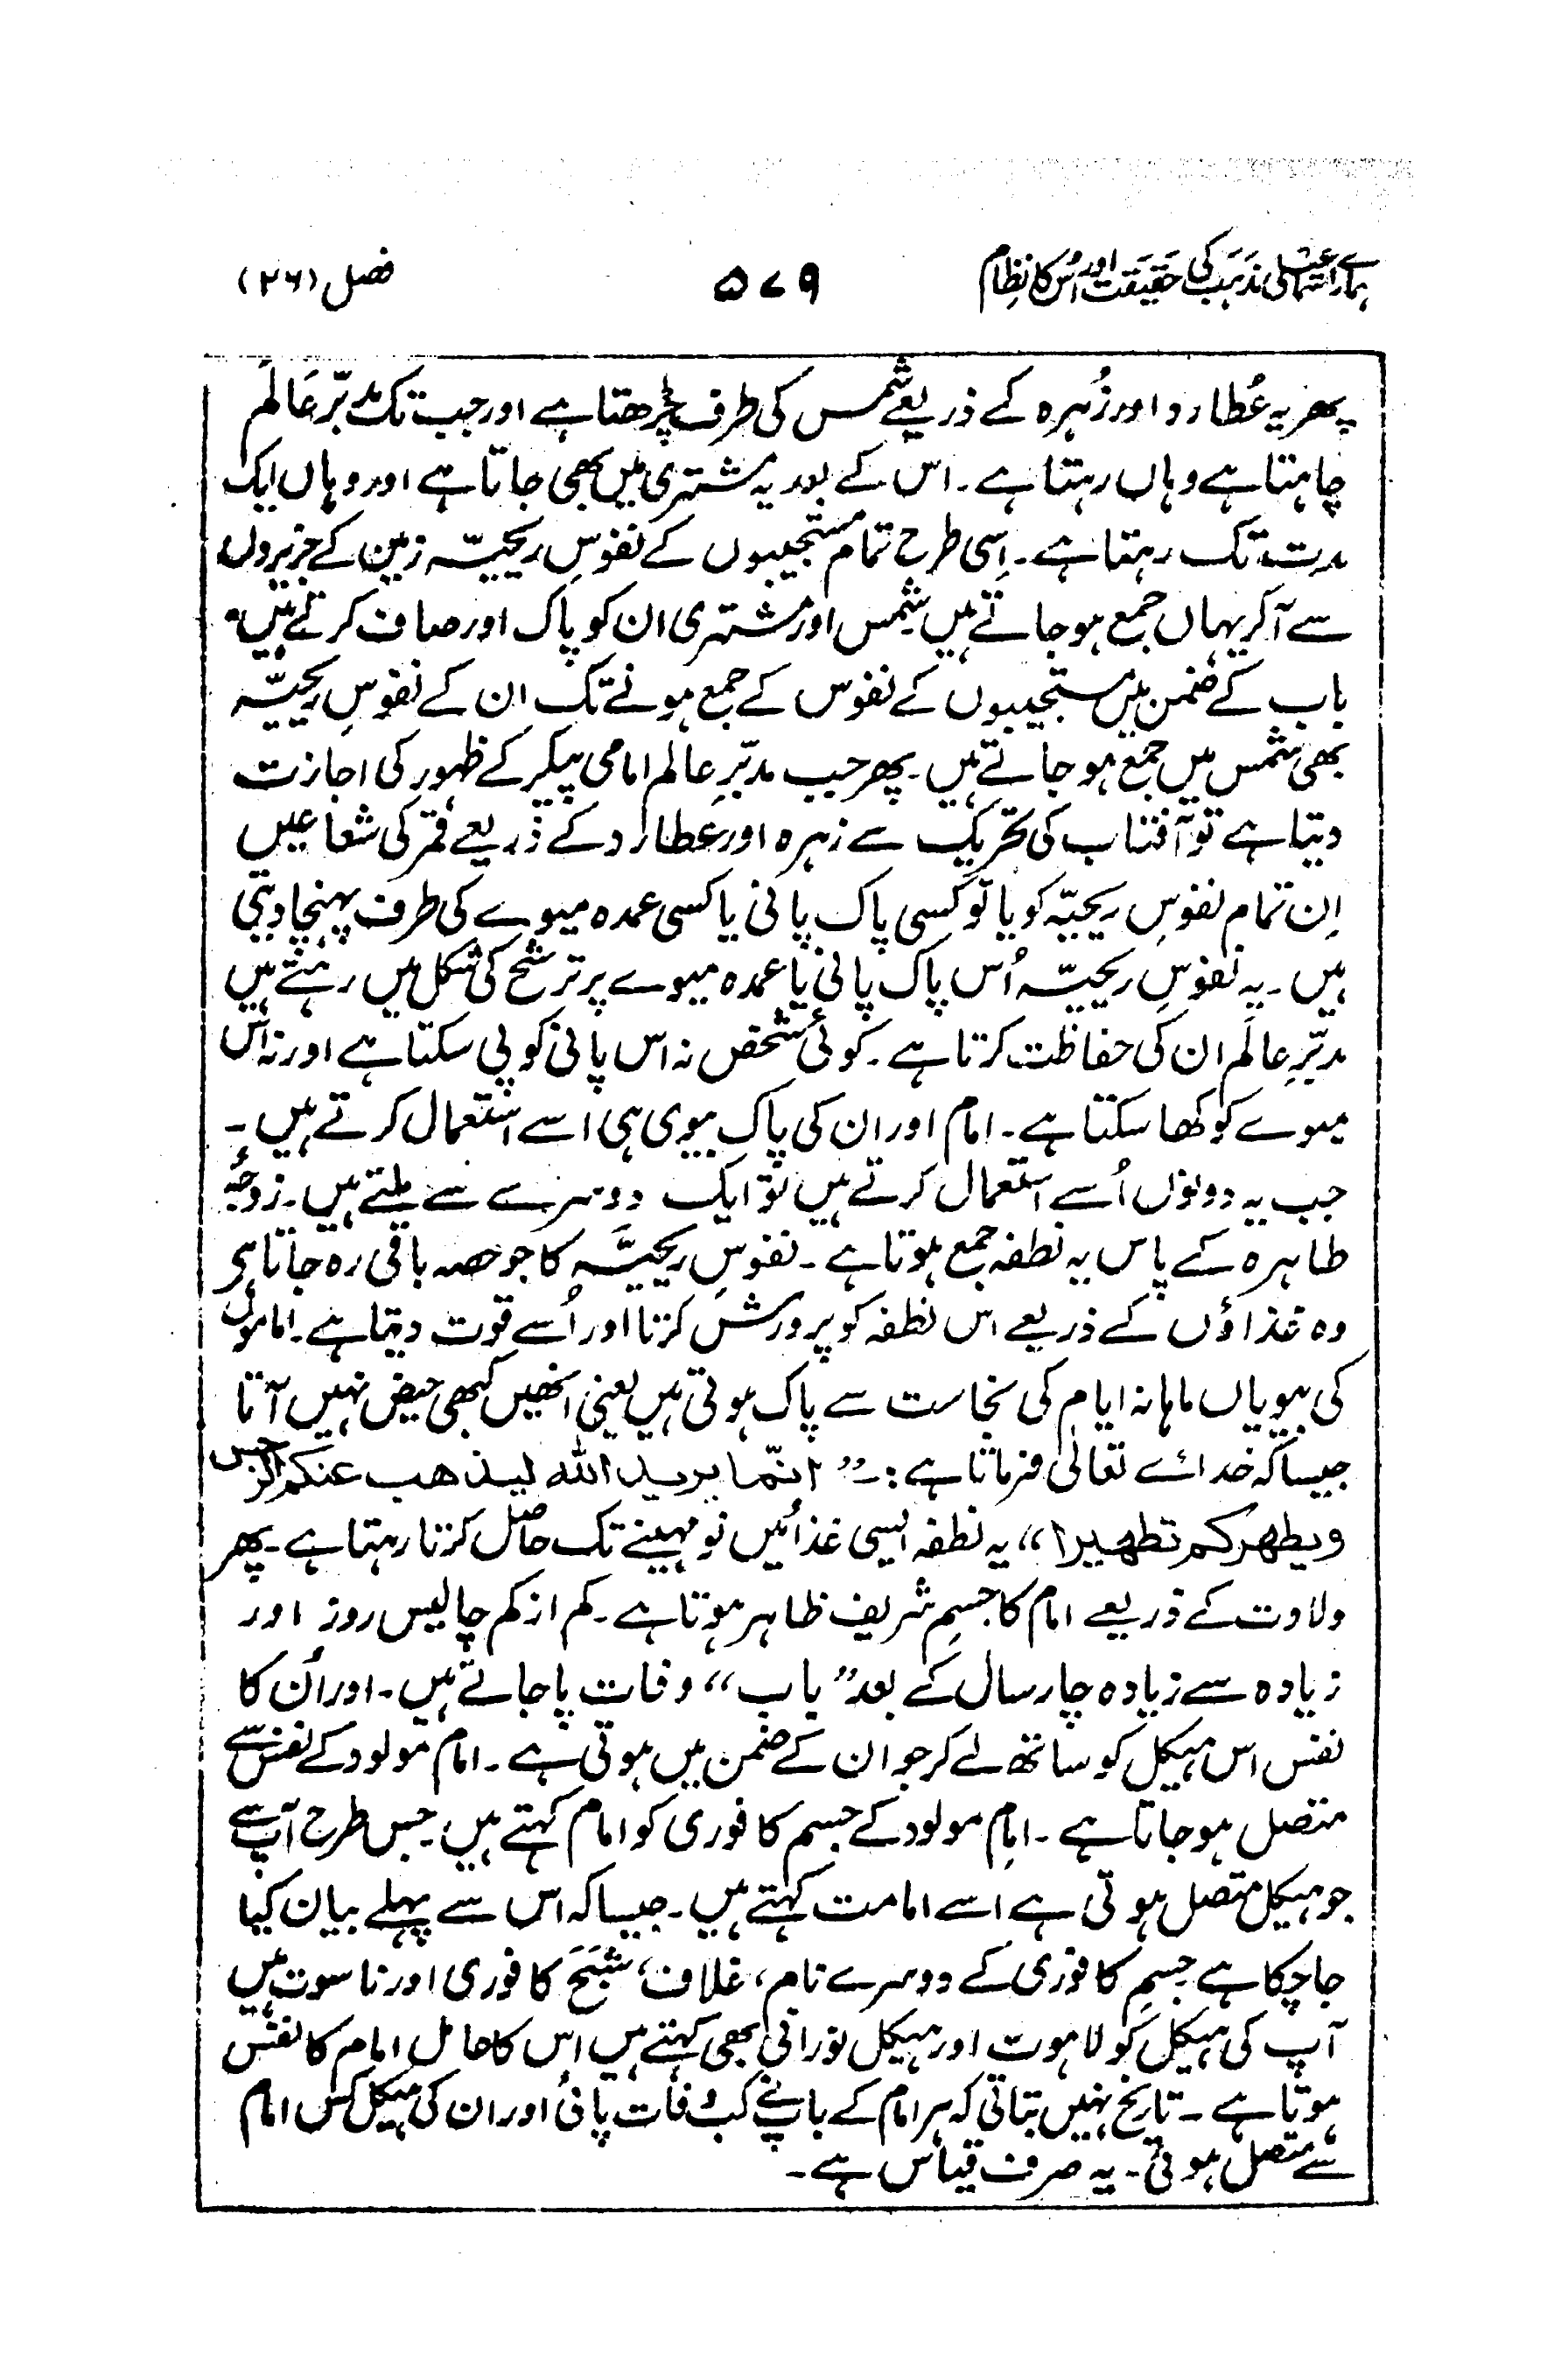 ہمارے اسماعیلی مذہب کی حقیقت اور اُس کا نظام ۵۷۹ فصل (۲۶)
پھر یہ عُطارد اور زُہرہ کے ذریعے شمس کی طرف چڑھتا ہے اور جب تک مدبّر عَالَم
چاہتا ہے وہاں رہتا ہے۔ اس کے بعد یہ مشتری میں بھی جاتا ہے اور وہاں ایک
مدت تک رہتا ہے۔ اِسی طرح تمام مستجیبوں کے نفوسِ ریحیّہ زمین کے جزیروں
سے آکر یہاں جمع ہو جاتے ہیں شمس اور مشتری ان کو پاک اور صاف کرتے ہیں۔
باب کے ضمن میں مستجیبوں کے نفوس کے جمع ہونے تک ان کے نفوسِ ریحیّہ
بھی شمس میں جمع ہو جاتے ہیں۔ پھر جب مدبّرِ عالم امامی پیکر کے ظہور کی اجازت
دیتا ہے تو آفتاب کی تحریک سے زہرہ اور عطارد کے ذریعے قمر کی شعاعیں
اِن تمام نفوسِ ریحیّہ کو یا تو کسی پاک پانی یا کسی عمدہ میوے کی طرف پہنچا دیتی
ہیں۔ یہ نفوسِ ریحیّہ اُس پاک پانی یا عمدہ میوے پر ترشح کی شکل میں رہتے ہیں
مدبّرِ عالَم ان کی حفاظت کرتا ہے۔ کوئی شخص نہ اس پانی کو پی سکتا ہے اور نہ اس
میوے کو کھا سکتا ہے۔ امام اور ان کی پاک بیوی ہی اسے استعمال کرتے ہیں۔
جب یہ دونوں اُسے استعمال کرتے ہیں تو ایک دوسرے سے ملتے ہیں۔ زوجۂ
طاہرہ کے پاس یہ نطفہ جمع ہوتا ہے۔ نفوسِ ریحیَّہ کا جو حصہ باقی رہ جاتا ہی
وہ غذاؤں کے ذریعے اس نطفہ کو پرورش کرتا اور اُسے قوت دیتا ہے۔ اماموں
کی بیویاں ماہانہ ایام کی نجاست سے پاک ہوتی ہیں یعنی انھیں کبھی حیض نہیں آتا
جیسا کہ خدائے تعالیٰ فرماتا ہے:۔ ”انّما یرید اللہ لیذھب عنکم الرجس
ویطھرکم تطھیرا“ یہ نطفہ ایسی غذائیں نو مہینے تک حاصل کرتا رہتا ہے۔ پھر
ولادت کے ذریعے امام کا جسمِ شریف ظاہر ہوتا ہے۔ کم از کم چالیس روز اور
زیادہ سے زیادہ چار سال کے بعد ”باب“ وفات پا جاتے ہیں۔ اور اُن کا
نفس اس ہیکل کو ساتھ لے کر جو ان کے ضمن میں ہوتی ہے۔ امام مولود کے نفس سے
متصل ہو جاتا ہے۔ امامِ مولود کے جسم کافوری کو امام کہتے ہیں۔ جس طرح آپ سے
جو ہیکل متصل ہوتی ہے اسے امامت کہتے ہیں۔ جیسا کہ اس سے پہلے بیان کیا
جا چکا ہے جسمِ کافوری کے دوسرے نام، غلاف، شَبَح کافوری اور ناسوت ہیں
آپ کی ہیکل کو لاہوت اور ہیکل نورانی بھی کہتے ہیں اس کا حامل امام کا نفس
ہوتا ہے۔ تاریخ نہیں بتاتی کہ ہر امام کے باب نے کب وفات پائی اور ان کی ہیکل کس امام
سے متصل ہوئی۔ یہ صرف قیاس ہے۔